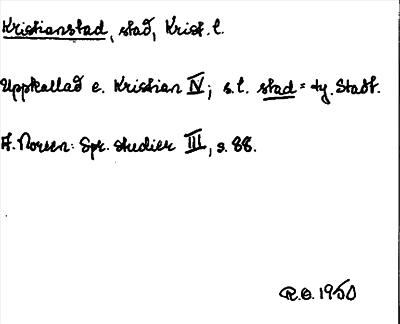 Kristianstad, stad, Krist. l.
Uppkallad e. Kristian IV; s.l. stad = ty. Stadt.
A. Noreen: Spr. studier III, s. 88.
R.O. 1950